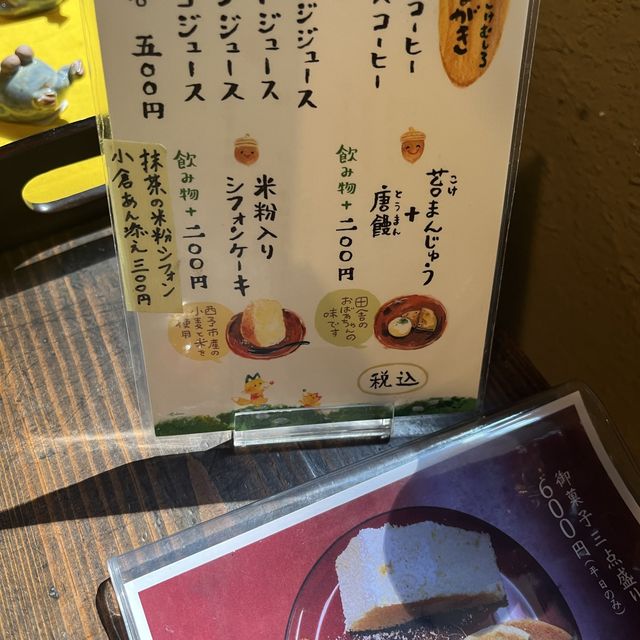 こけむしろ
がき
コーヒー
スコーヒー
ジジュース
ジュース
ジュース
コジュース
五〇〇円
苔まんじゅう
こけ
+
唐饅
とうまん
飲み物+二〇〇円
田舎の
おばあちゃんの
味です
米粉入り
シフォンケーキ
飲み物+二〇〇円
西予市産の
小麦と米を
使用
抹茶の米粉シフォン
小倉あん添え 三〇〇円
税込
御菓子三点盛り
600円(平日のみ)